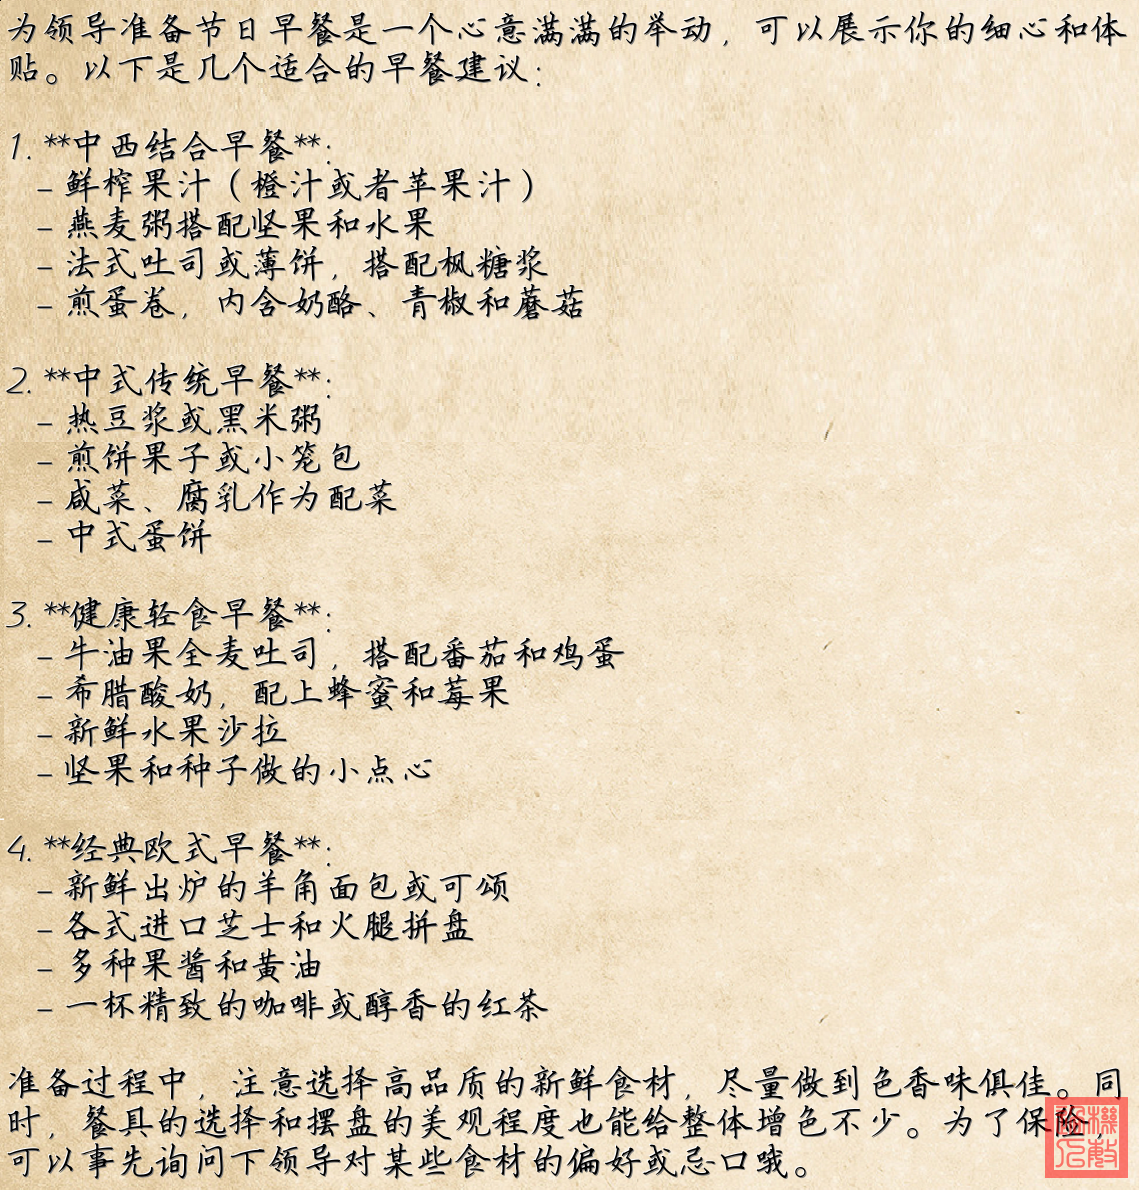 为领导准备节日早餐是一个心意满满的举动，可以展示你的细心和体
贴。以下是几个适合的早餐建议：
1. **中西结合早餐**：
– 鲜榨果汁（橙汁或者苹果汁）
– 燕麦粥搭配坚果和水果
– 法式吐司或薄饼，搭配枫糖浆
– 煎蛋卷，内含奶酪、青椒和蘑菇
2. **中式传统早餐**：
– 热豆浆或黑米粥
– 煎饼果子或小笼包
– 咸菜、腐乳作为配菜
– 中式蛋饼
3. **健康轻食早餐**：
– 牛油果全麦吐司，搭配番茄和鸡蛋
– 希腊酸奶，配上蜂蜜和莓果
– 新鲜水果沙拉
– 坚果和种子做的小点心
4. **经典欧式早餐**：
– 新鲜出炉的羊角面包或可颂
– 各式进口芝士和火腿拼盘
– 多种果酱和黄油
– 一杯精致的咖啡或醇香的红茶
准备过程中，注意选择高品质的新鲜食材，尽量做到色香味俱佳。同
时，餐具的选择和摆盘的美观程度也能给整体增色不少。为了保险，
可以事先询问下领导对某些食材的偏好或忌口哦。